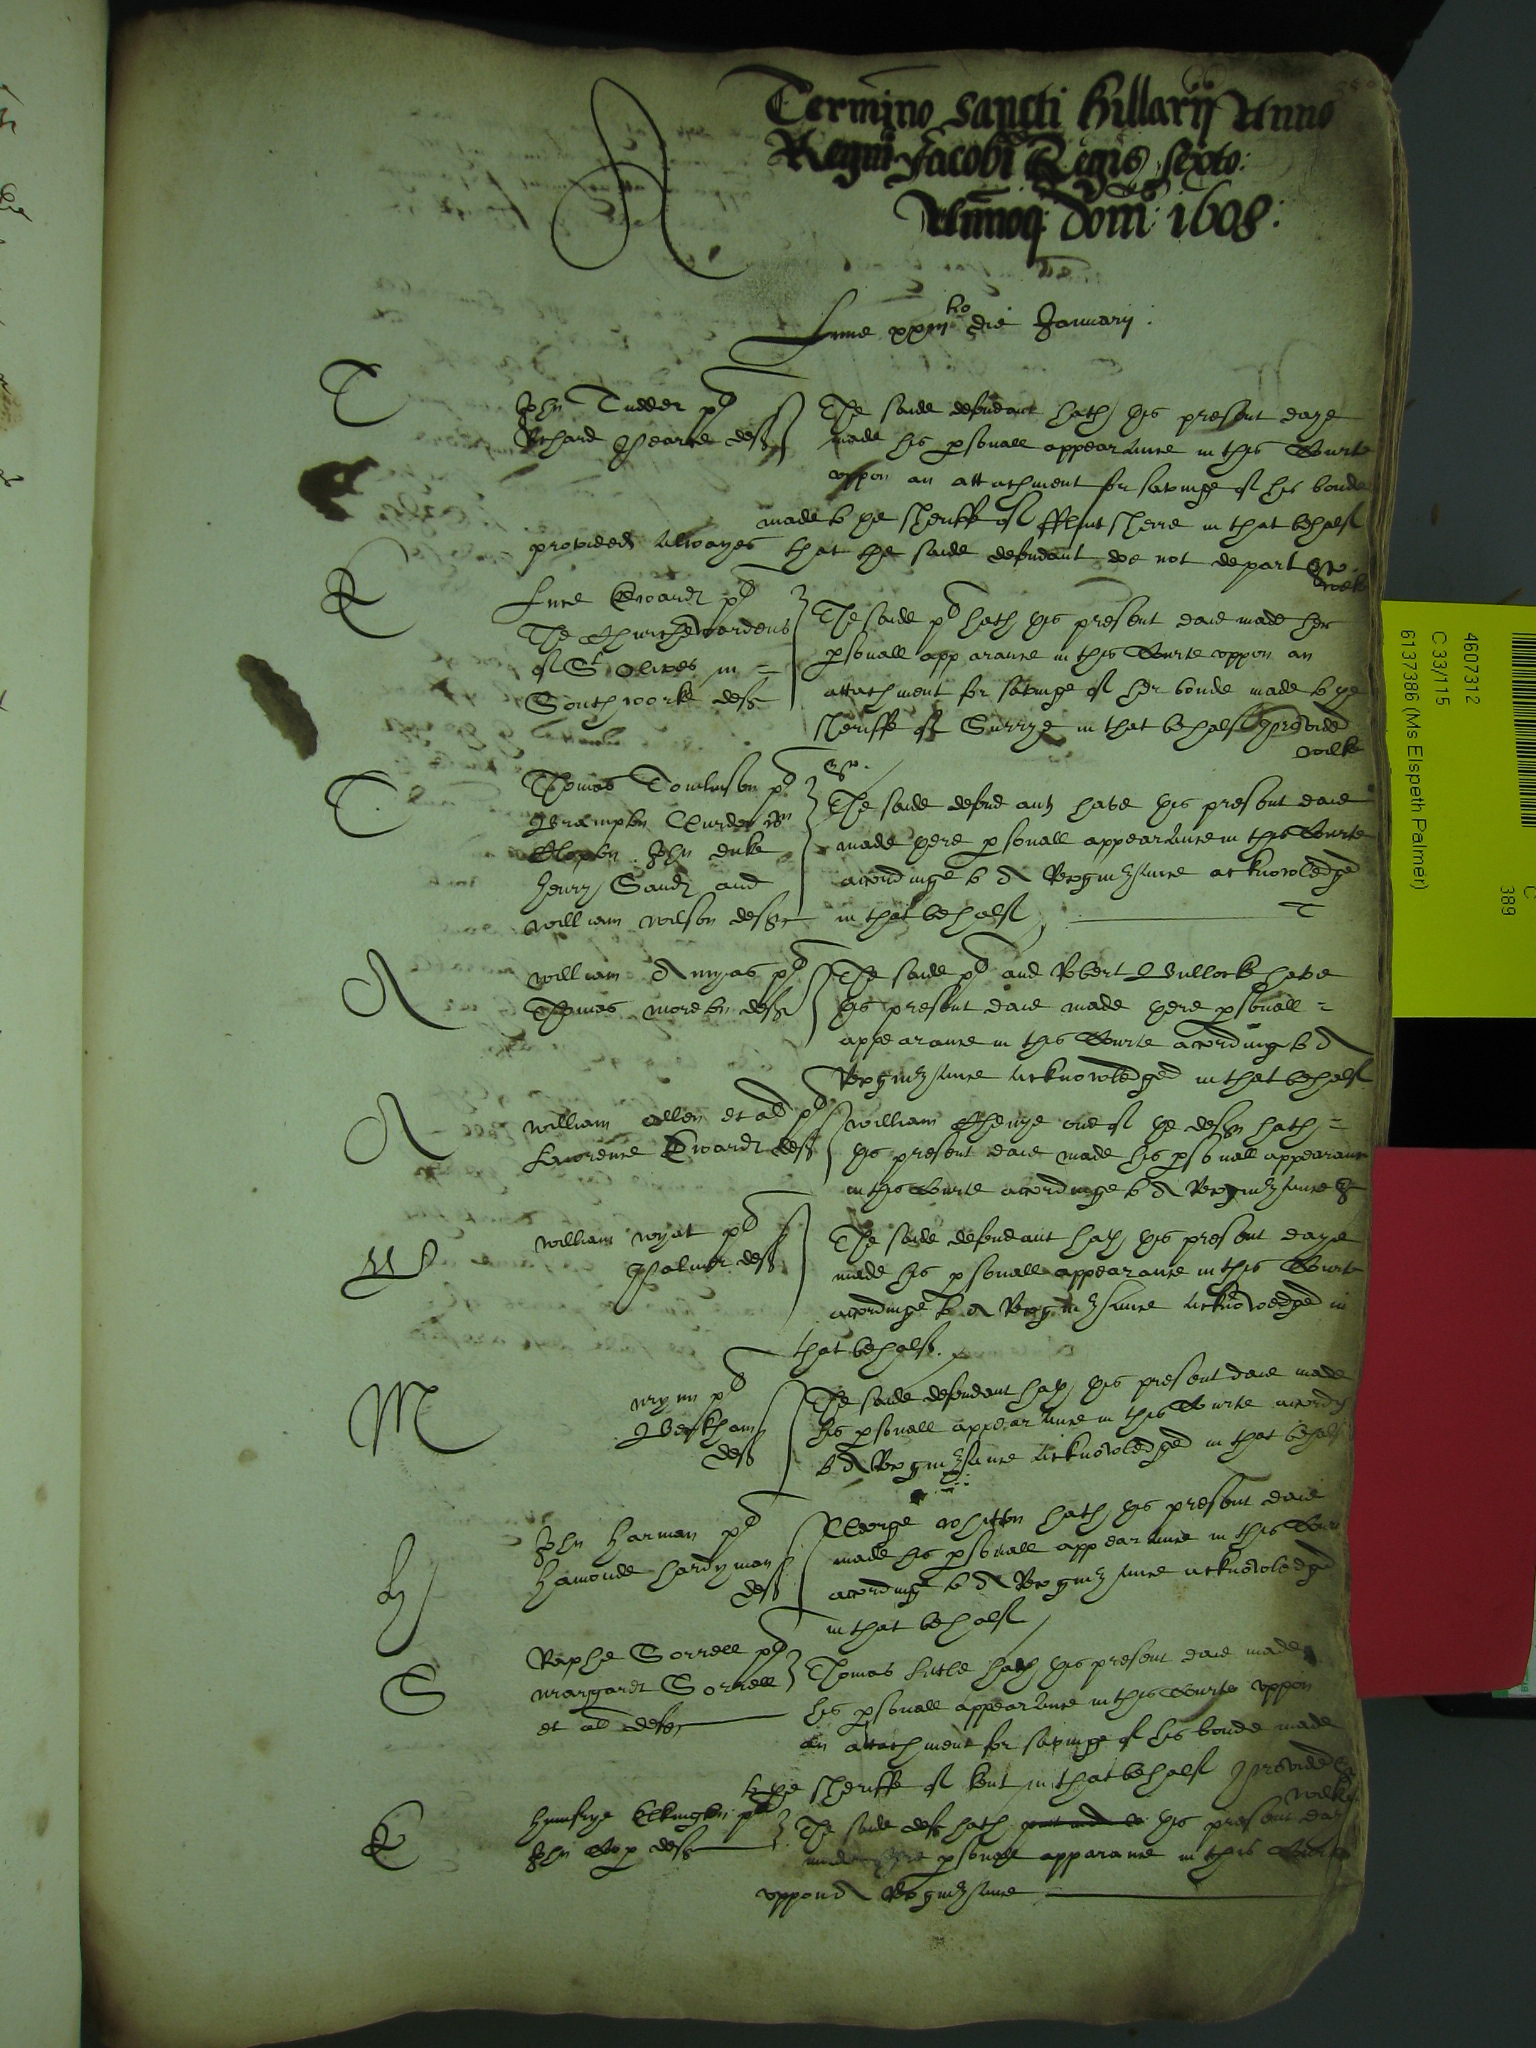 Termino Sancti Hillarij Anno
Regni Jacobi Regis sexto:
Annoq: Dom: 1608:
Lune xxiij die Januarij.
T
John Tudder pl
Richard Pearce def
The saide defendant hath this present daye
made his psonall appearaunce in this Courte
uppon an attachment for savinge of his bonde
made to the Sheriffe of Flint sheire in that behalf
provided alwayes that the saide defendant doe not depart &c
E
Edwards pl
The Churchwardens
of St Olives in =
Southworke def
The saide pl hath this present daie made her
psonall apparance in this Courte uppon an
attachment for savinge of her bonde made to the
sheriffe of Surrye in that behalf provided
&c.
T
Thomas Tomlinson pl
John duke
Henry Sands and
William Wilson def
The saide defendants have this present daie
made there psonall appearaunce in this Courte
accordinge to A Recognizaunce acknowledged
in that behalf
A
William Amyas pl
Thomas Moreton def
The saide pl and Robert Bullocke have
this present daie made there psonall =
appearance in this Courte according to A
Recognizaunce acknowledged in that behalf
A
William Allen et al pl
Lawrence Edwards def
William Cheney one of the def hath =
this present daie made his psonall appearance
in this Courte accordinge to A Recognizaunce &
W
William Wyat pl
Palmer def
The saide defendant hath this present daye
made his psonall appearance in this Courte
accordinge to A Recognizaunce acknowledged in
that behalf.
M
pl
Berkham
def
The saide defendant hath this present daie made
his psonall appearaunce in this Courte
to A Recognizaunce acknowledged in that behalf
H
John Harman pl
Hamonde Hardyman
def
George Whitton hath this present daie
made his psonall appearaunce in this Courte
accordinge to A Recognizaunce acknowledged
in that behalf
S
Raphe Sorrell pl
Margaret Sorrell
et al def
Thomas Little hath this present daie made
his psonall appearaunce in this Courte uppon
an attachment for savinge of his bonde made
to the Sheriffe of Kent in that behalf provided &c
E
Humfrye Elkington pl
John Cop def
The saide def hath this present daie
made psonall apparance in this Courte
uppon A Recognizaunce
4607312
C 33/115
6137386 (Ms Elspeth Palmer)
C
389